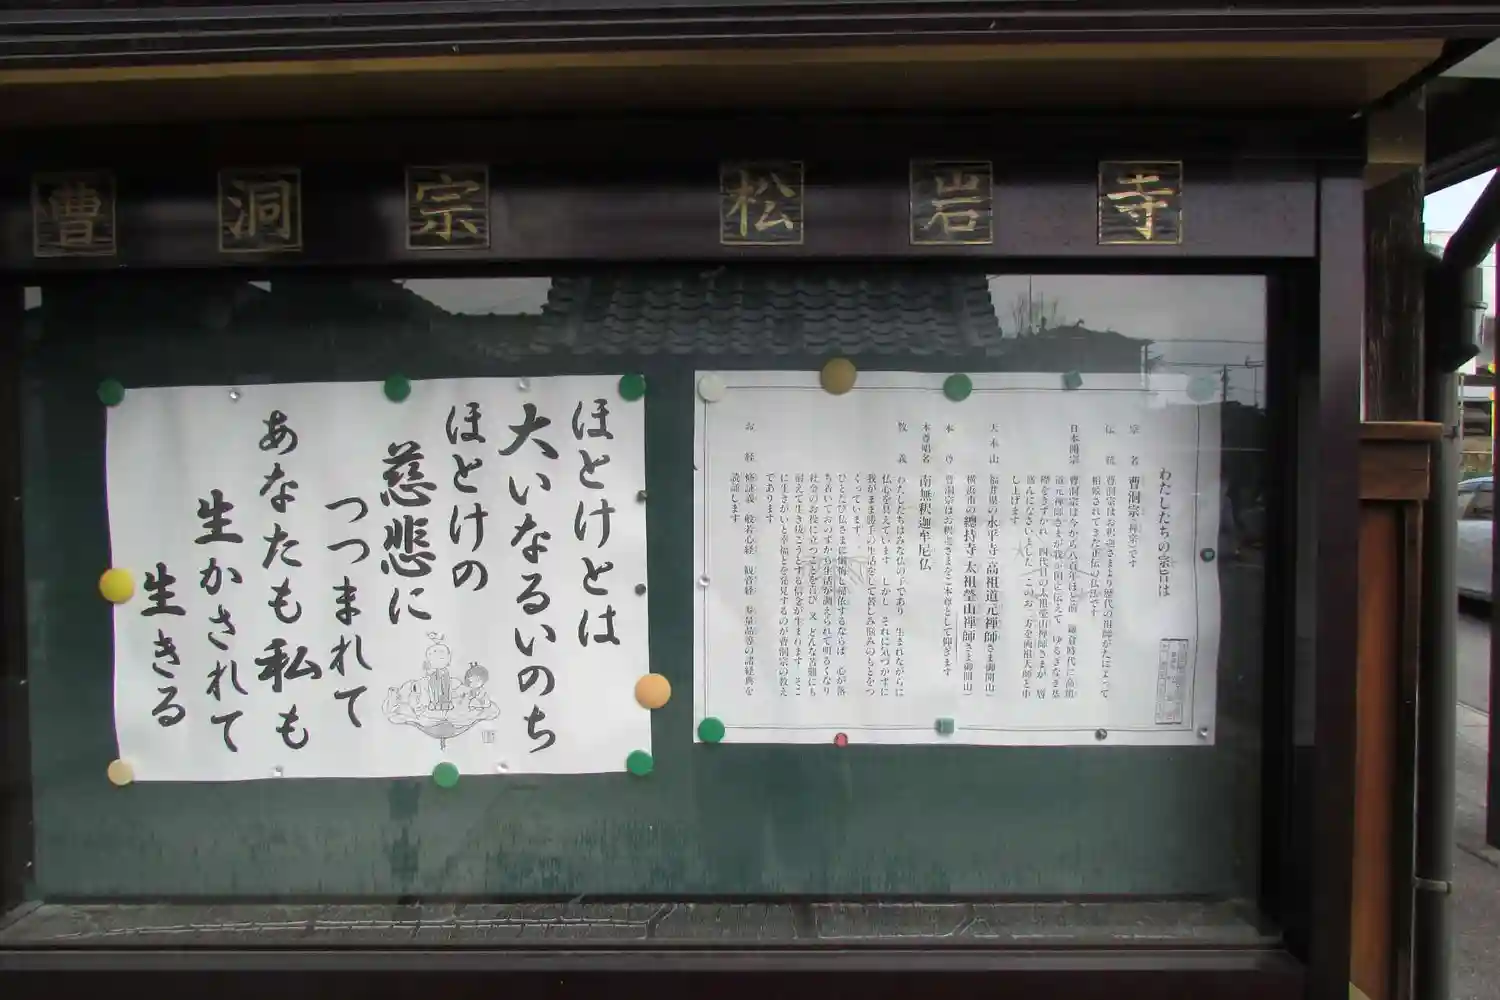 曹洞宗 松岩寺
ほとけとは
大いなるいのち
ほとけの
慈悲に
つつまれて
あなたも私も
生かされて
生きる
わたしたちの宗旨は
宗名 曹洞宗(禅宗)です
伝統 曹洞宗はお釈迦さまより歴代の祖師がたによって
相続されてきた正伝の仏法です
日本開宗 曹洞宗は今から八百年ほど前 鎌倉時代に高祖
道元禅師さまが我が国に伝えて ゆるぎなき基
礎をきずかれ 四代目の太祖瑩山禅師さまが 盛
んになさいました このお二方を両祖大師と申
し上げます
大本山 福井県の永平寺 高祖道元禅師さま御開山
横浜市の總持寺 太祖瑩山禅師さま御開山
本尊 曹洞宗はお釈迦さまをご本尊として仰ぎます
本尊唱名 南無釈迦牟尼仏
教義 わたしたちはみな仏の子であり 生まれながらに
仏心を具えています しかし それに気づかずに
我がまま勝手の生活をして苦しみ悩みのもとをつ
くっています
ひとたび仏さまに懺悔し帰依するならば 心が落
ち着いておのずから生活が調えられて明るくなり
社会のお役に立つことを喜び 又 どんな苦難にも
耐えて生き抜こうとする信念が生まれます そこ
に生きがいと幸福とを発見するのが曹洞宗の教え
であります
お経 修証義 般若心経 観音経 寿量品等の諸経典を
読誦します